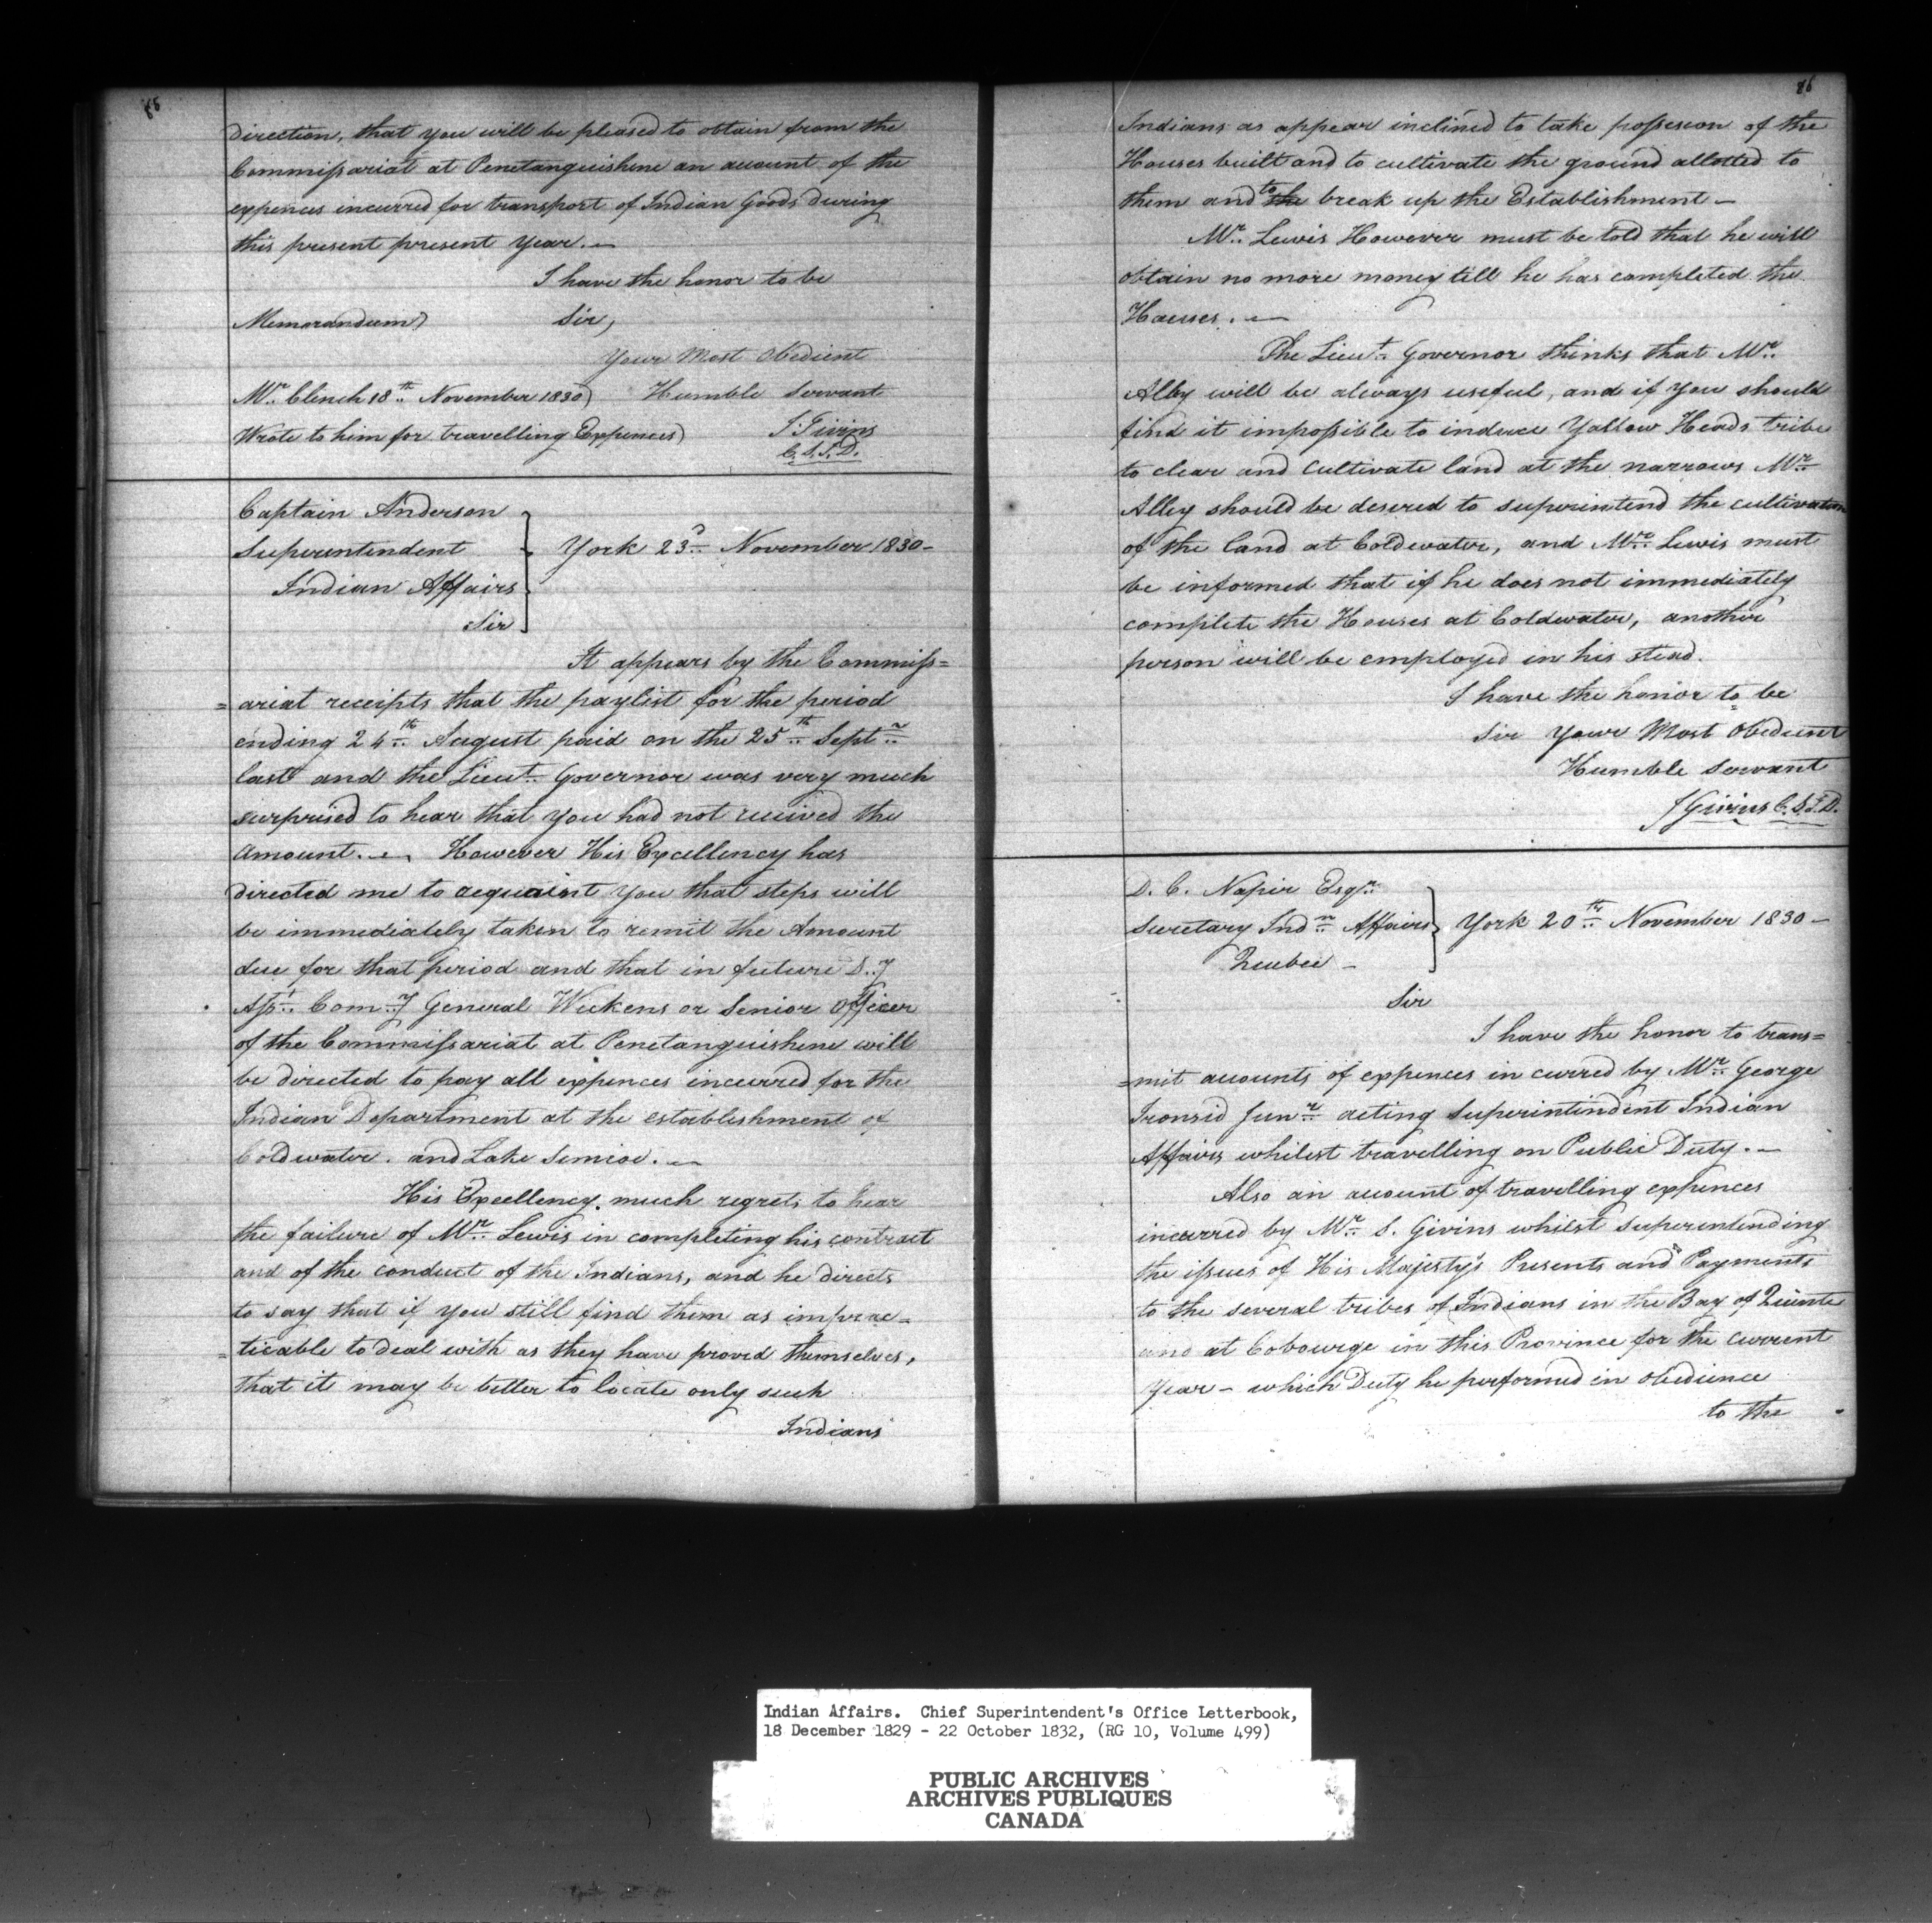 85
direction, that you will be pleased to obtain from the
Commissariat at Penetanguishene an account of the
expences incurred for transport of Indian Goods during
this present present Year. —
I have the honor to be
Memorandum) Sir,
Your Most Obedient
Mr. Clench 18th November 1830) Humble Servant
Wrote to him for travelling Expences) J Givins
C.S.I.D.
Captain Anderson
Superintendent
Indian Affairs
Sir
York 23d November 1830 —
It appears by the Commiss=
=ariat receipts that the paylist for the period
ending 24th August paid on the 25th Septr
last and the Lieut. Governor was very much
surprised to hear that you had not received the
Amount. — However His Excellency has
directed me to acquaint you that steps will
be immediately taken to remit the Amount
due for that period and that in future D.y
Asst. Com.y General Wickens or Senior Officer
of the Commissariat at Penetanguishene will
be directed to pay all expences incurred for the
Indian Department at the establishment of
Coldwater. and Lake Simcoe. —
His Excellency much regrets to hear
the failure of Mr. Lewis in completing his contract
and of the conduct of the Indians, and he directs
to say that if you still find them as imprac=
=ticable to deal with as they have proved themselves,
that it may be better to locate only such
Indians
86
Indians as appear inclined to take possession of the
Houses built and to cultivate the ground allotted to
them and to the break up the Establishment —
Mr. Lewis However must be told that he will
obtain no more money till he has completed the
Houses. —
The Lieut. Governor thinks that Mr.
Alley will be always useful, and if you should
find it impossible to induce Yallow Heads tribe
to clear and Cultivate land at the narrows Mr.
Alley should be desered to superintend the cultivation
of the land at Coldwater, and Mr. Lewis must
be informed that if he does not immediately
complete the Houses at Coldwater, another
person will be employed in his stead.
I have the honor to be
Sir Your Most Obedient
Humble Servant
J Givins C.S.I.D.
D. C. Napier Esqr.
Secretary Indn. Affairs
Quebec —
York 20th November 1830 —
Sir
I have the honor to trans=
=mit accounts of expences in curred by Mr. George
Ironsid Junr. acting Superintindent Indian
Affairs whilest travelling on Public Duty. —
Also an account of travelling expences
incurred by Mr. S. Givins whilst superintending
the issues of His Majesty's Presents and Payments
to the several tribes of Indians in the Bay of Quinte
and at Cobourge in this Province for the current
Year — which Duty he performed in obedience
to the
Indian Affairs. Chief Superintendent's Office Letterbook,
18 December 1829 - 22 October 1832, (RG 10, Volume 499)
PUBLIC ARCHIVES
ARCHIVES PUBLIQUES
CANADA